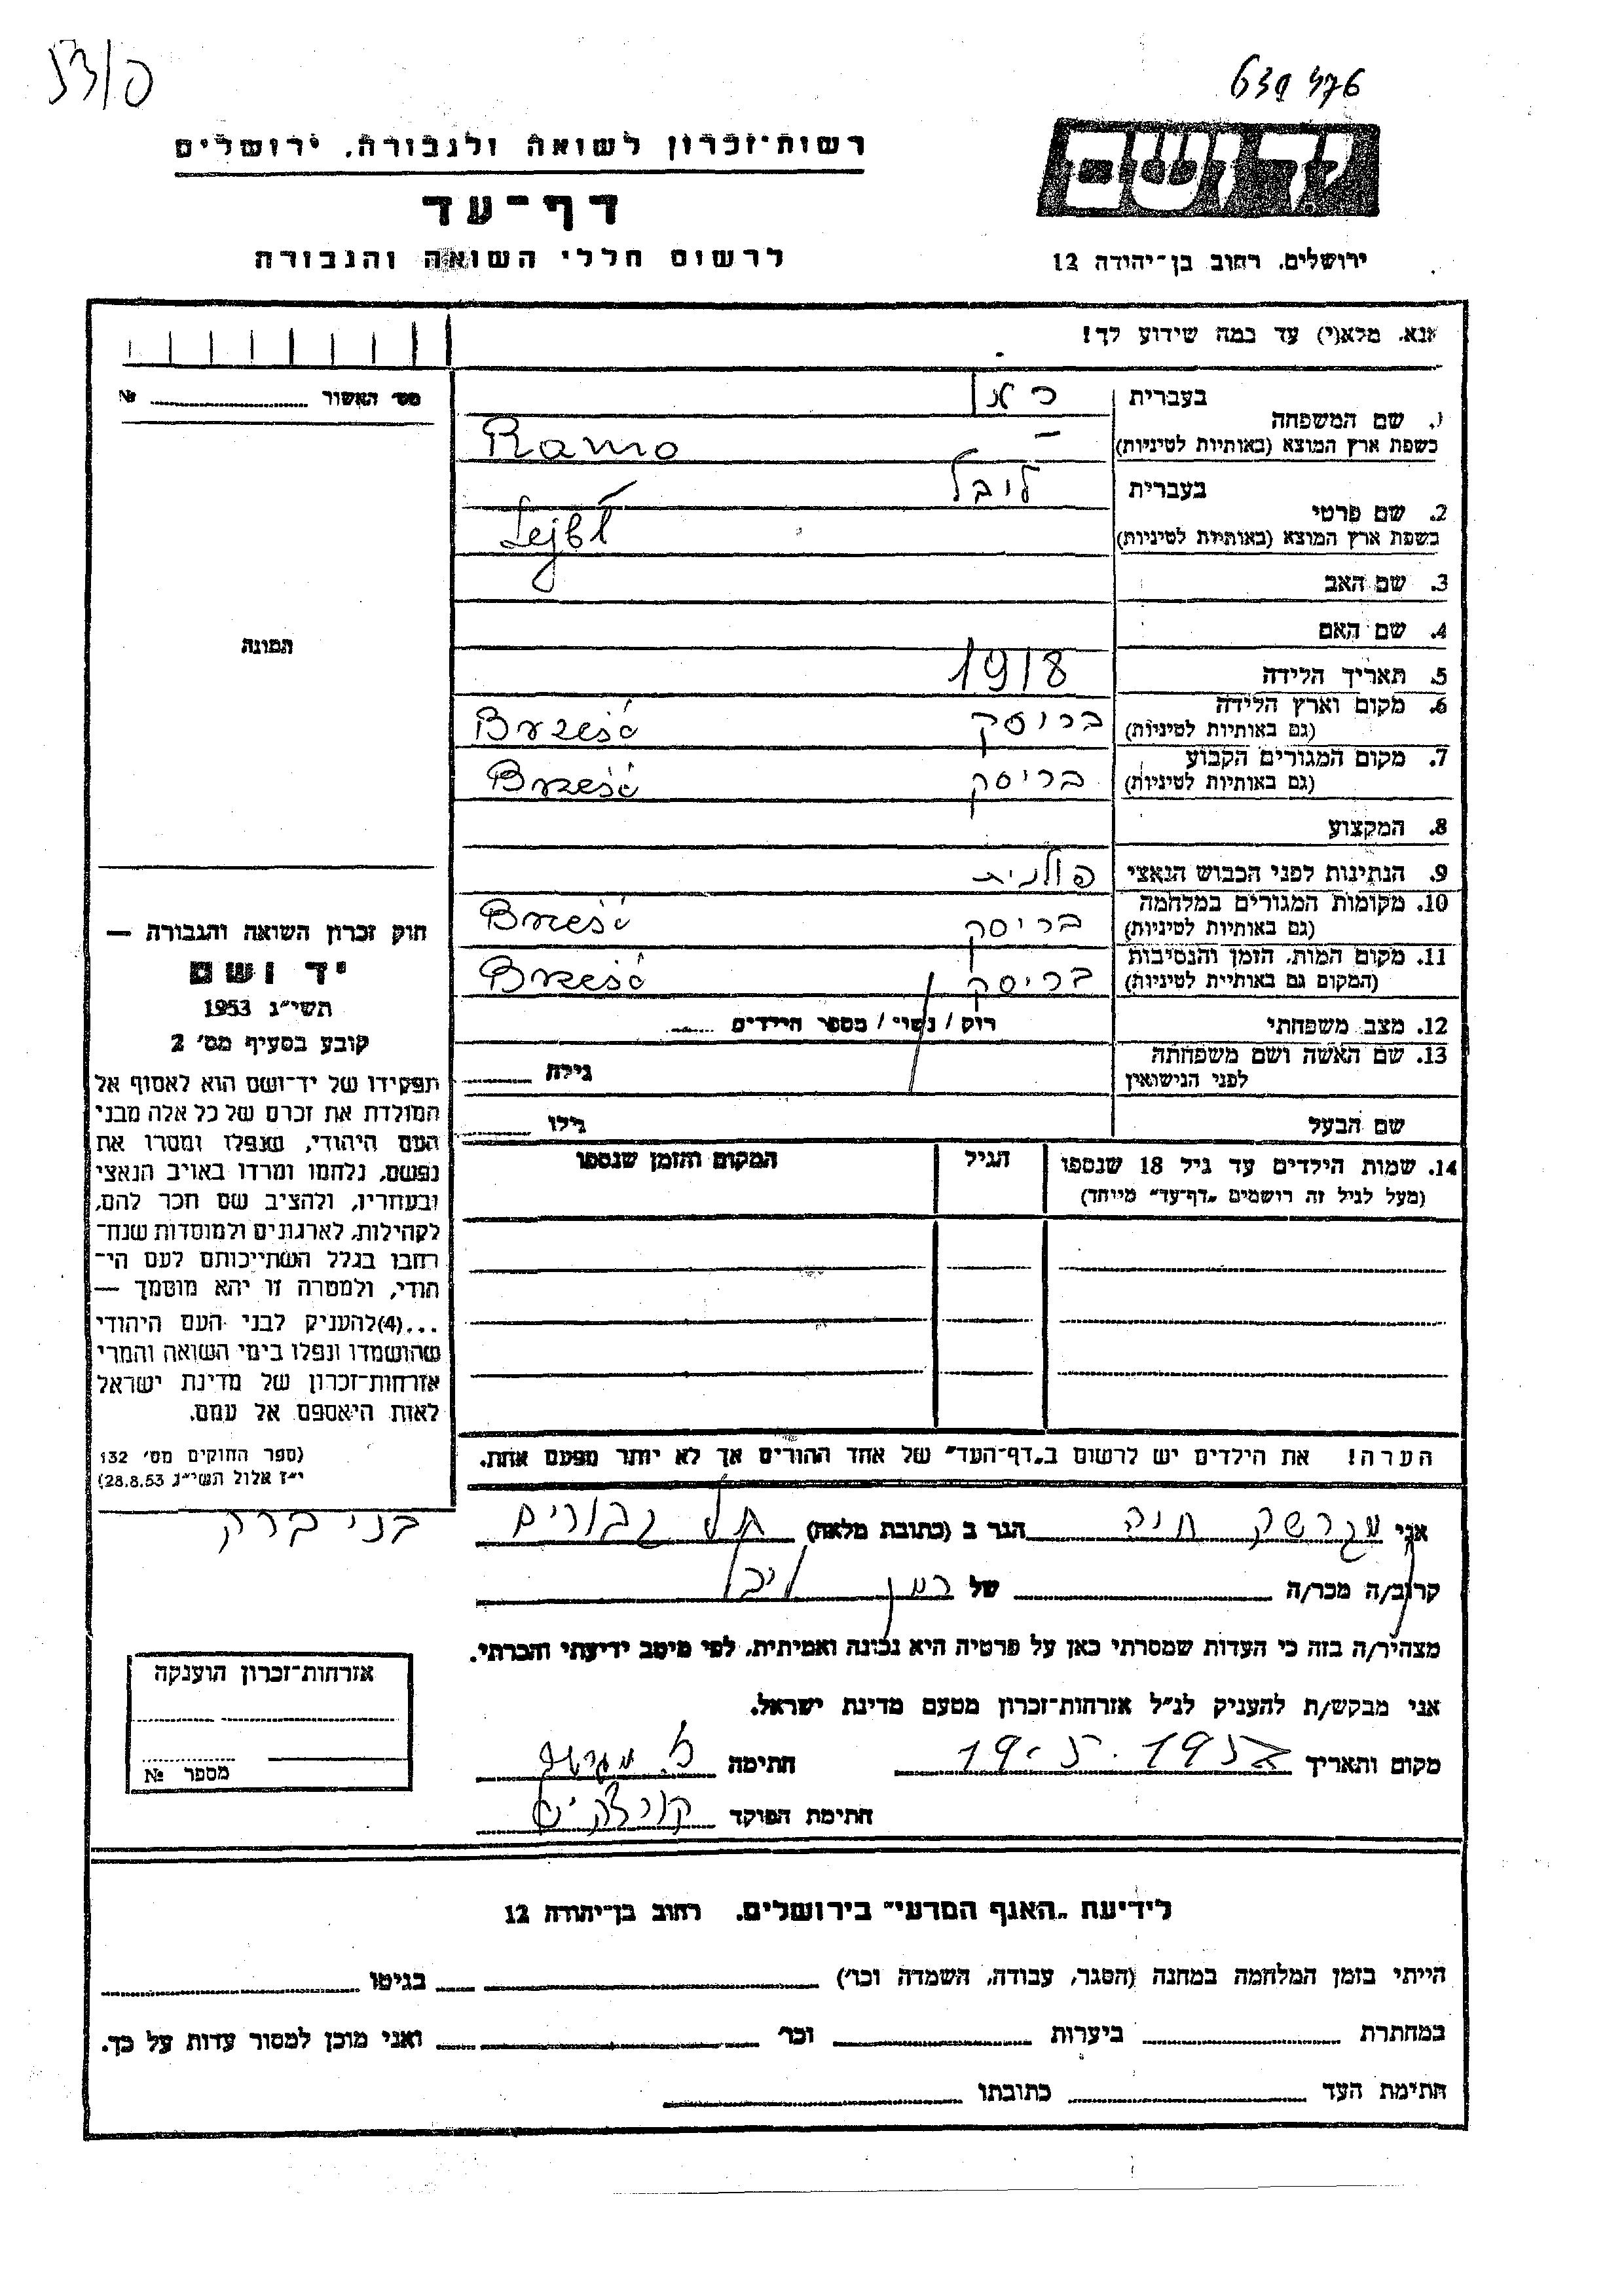 53/פ
639476
יד ושם
ירושלים, רחוב בן־יהודה 12
רשות־זכרון לשואה ולגבורה, ירושלים
דף־עד
לרשום חללי השואה והגבורה
אנא, מלא(י) עד כמה שידוע לך!
מס׳ האשור ........ №
התמונה
1. שם המשפחה
בעברית
בשפת ארץ המוצא (באותיות לטיניות)
2. שם פרטי
בעברית לייבל
בשפת ארץ המוצא (באותיות לטיניות)
3. שם האב
4. שם האם
5. תאריך הלידה 1918
6. מקום וארץ הלידה
(גם באותיות לטיניות) בריסק Brześć
7. מקום המגורים הקבוע
(גם באותיות לטיניות) בריסק Brześć
8. המקצוע
9. הנתינות לפני הכבוש הנאצי פולנית
10. מקומות המגורים במלחמה
(גם באותיות לטיניות) בריסק Brześć
11. מקום המות, הזמן והנסיבות
(המקום גם באותיות לטיניות) בריסק Brześć
12. מצב משפחתי רווק / נשוי / מספר הילדים ........
13. שם האשה ושם משפחתה
לפני הנישואין גילה ........
שם הבעל גילו ........
14. שמות הילדים עד גיל 18 שנספו
(מעל לגיל זה רושמים „דף־עד" מיוחד)
הגיל
המקום והזמן שנספו
הערה! את הילדים יש לרשום ב„דף־העד" של אחד ההורים אך לא יותר מפעם אחת.
חוק זכרון השואה והגבורה —
יד ושם
תשי״ג 1953
קובע בסעיף מס׳ 2
תפקידו של יד־ושם הוא לאסוף אל
המולדת את זכרם של כל אלה מבני
העם היהודי, שנפלו ומסרו את
נפשם, נלחמו ומרדו באויב הנאצי
ובעוזריו, ולהציב שם וזכר להם,
לקהילות, לארגונים ולמוסדות שנח־
רבו בגלל השתייכותם לעם הי־
הודי, ולמטרה זו יהא מוסמך —
...(4)להעניק לבני העם היהודי
שהושמדו ונפלו בימי השואה והמרי
אזרחות־זכרון של מדינת ישראל
לאות היאספם אל עמם.
(ספר החוקים מס׳ 132
י״ז אלול תשי״ג 28.8.53)
אני חיה הגר ב (כתובת מלאה) תל גבורים בני ברק
קרוב/ה מכר/ה ........ של
מצהיר/ה בזה כי העדות שמסרתי כאן על פרטיה היא נכונה ואמיתית, לפי מיטב ידיעתי והכרתי.
אני מבקש/ת להעניק לנ״ל אזרחות־זכרון מטעם מדינת ישראל.
מקום ותאריך חתימה
חתימת הפוקד
אזרחות־זכרון הוענקה
מספר №
לידיעת „האגף המדעי" בירושלים, רחוב בן־יהודה 12
הייתי בזמן המלחמה במחנה (הסגר, עבודה, השמדה וכו׳) ........ בגיטו ........
במחתרת ........ ביערות ........ וכו׳ ........ ואני מוכן למסור עדות על כך.
חתימת העד ........ כתובתו ........